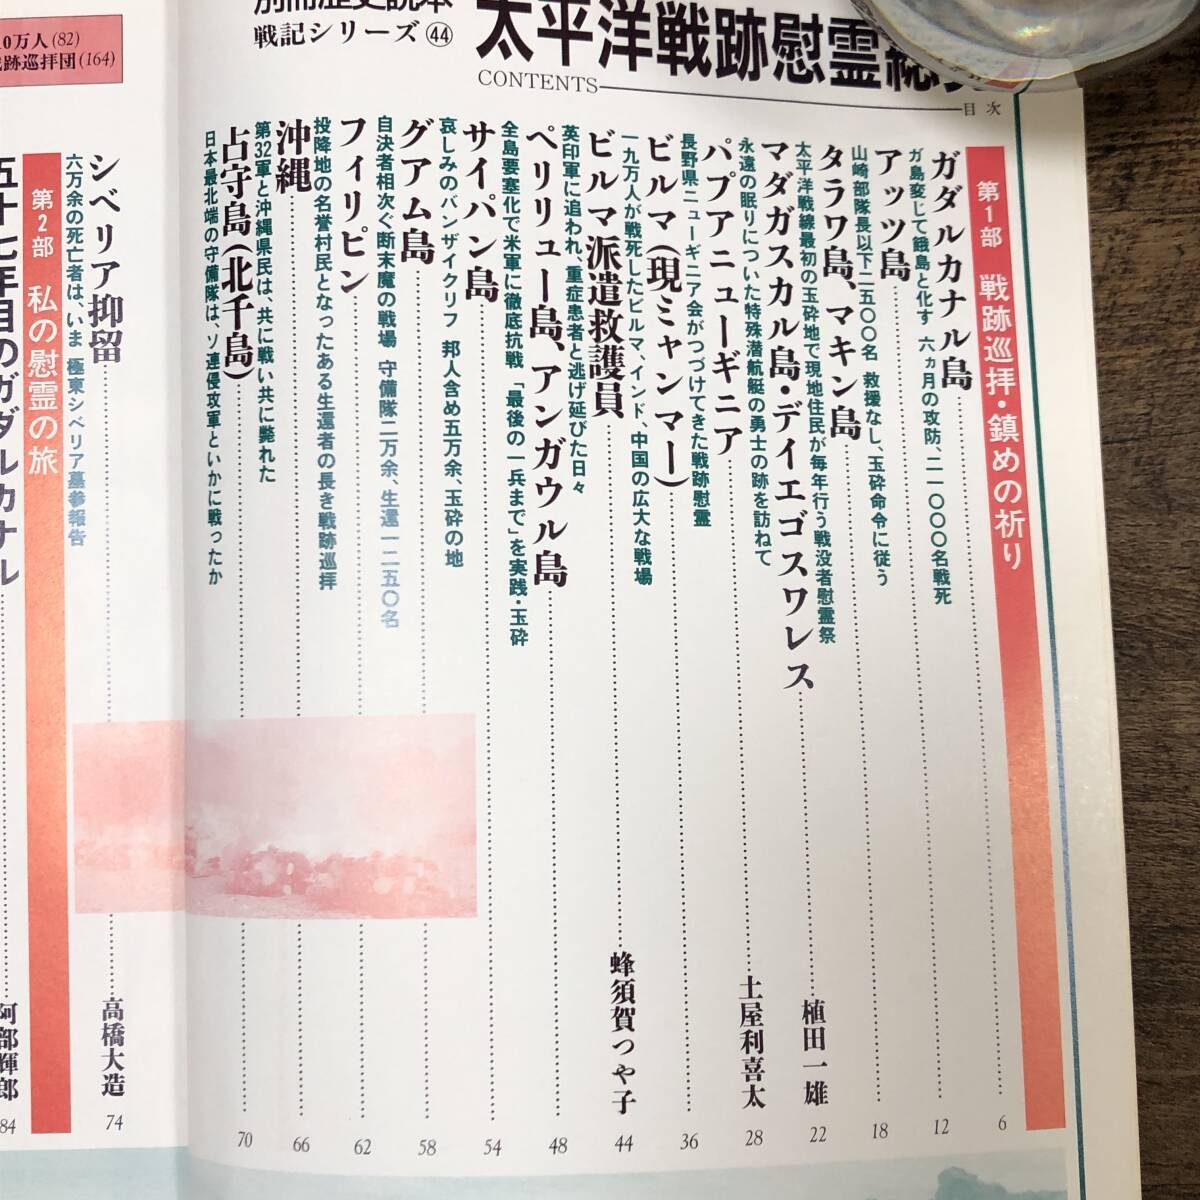 別冊歴史読本
戦記シリーズ㊹
太平洋戦跡慰霊総
CONTENTS
目次
第1部 戦跡巡拝・鎮めの祈り
ガダルカナル島 6
ガ島変じて餓島と化す 六ヵ月の攻防、二一〇〇〇名戦死
アッツ島 12
山崎部隊長以下二五〇〇名 救援なし、玉砕命令に従う
タラワ島、マキン島 18
太平洋戦線最初の玉砕地で現地住民が毎年行う戦没者慰霊祭
マダガスカル島・デイエゴスワレス 植田一雄 22
永遠の眠りについた特殊潜航艇の勇士の跡を訪ねて
パプアニューギニア 土屋利喜太 28
長野県ニューギニア会がつづけてきた戦跡慰霊
ビルマ(現ミャンマー) 36
一九万人が戦死したビルマ、インド、中国の広大な戦場
ビルマ派遣救護員 蜂須賀つや子 44
英印軍に追われ、重症患者と逃げ延びた日々
ペリリュー島、アンガウル島 48
全島要塞化で米軍に徹底抗戦 「最後の一兵まで」を実践・玉砕
サイパン島 54
哀しみのバンザイクリフ 邦人含め五万余、玉砕の地
グアム島 58
自決者相次ぐ断末魔の戦場 守備隊二万余、生還一二五〇名
フィリピン 62
投降地の名誉村民となったある生還者の長き戦跡巡拝
沖縄 66
第32軍と沖縄県民は、共に戦い共に斃れた
占守島(北千島) 70
日本最北端の守備隊は、ソ連侵攻軍といかに戦ったか
シベリア抑留 高橋大造 74
六万余の死亡者は、いま 極東シベリア墓参報告
第2部 私の慰霊の旅
五十七年目のガダルカナル 阿部輝郎 84
0万人(82)
跡巡拝団(164)